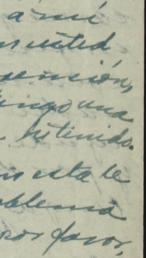 a mí
usted
pensión,
tengo una
retenido.
esta le
problema
por favor,